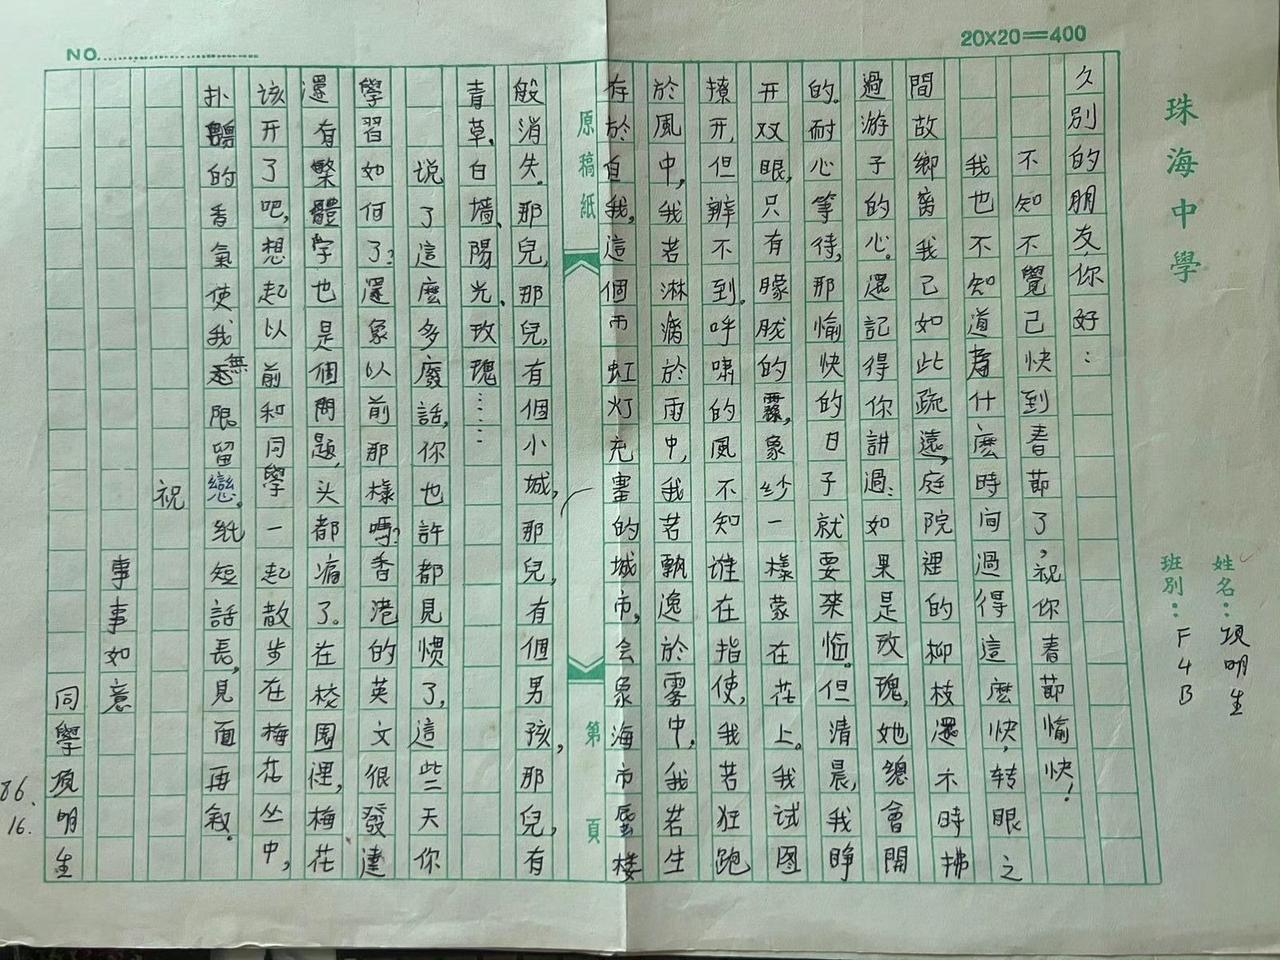 NO.
20X20=400
珠海中學
姓名：項明生
班別：F4B
久別的朋友，你好：
不知不覺已快到春節了，祝你春節愉快！
我也不知道為什麼時间過得這麼快，转眼之
間故鄉离我已如此疏遠，庭院裡的柳枝還不時拂
過游子的心。還記得你講過：如果是玫瑰，她總會開
的。耐心等待，那愉快的日子就要來临。但清晨，我睁
开双眼，只有朦胧的霧，象纱一樣蒙在花上。我试图
撩开，但辨不到。呼嘯的风不知谁在指使，我若狂跑
於風中，我若淋漓於雨中，我若飘逸於雾中，我若生
存於自我，這個雨虹灯充塞的城市，会象海市蜃楼
原稿紙
第 頁
般消失。那兒，那兒，有個小城，那兒，有個男孩，那兒，有
青草、白墙、陽光、玫瑰……
说了這麼多廢話，你也許都見惯了，這些天你
學習如何了？還象以前那樣嗎？香港的英文很發達
還有繁體字也是個問題，头都痛了。在校園裡，梅花
该开了吧，想起以前和同學一起散步在梅花丛中，
扑鼻的香氣使我無限留戀。纸短話長，見面再叙。
祝
事事如意
同學項明生
86.
16.